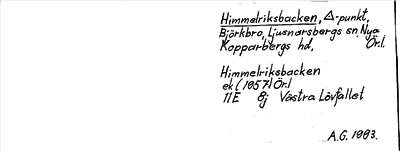 Himmelriksbacken, △-punkt,
Björkbro, Ljusnarsbergs sn, Nya
Kopparbergs hd, Ör.l.
Himmelriksbacken
ek (1957) Ör.l
11E 8j Västra Lövfallet
A.G. 1983.